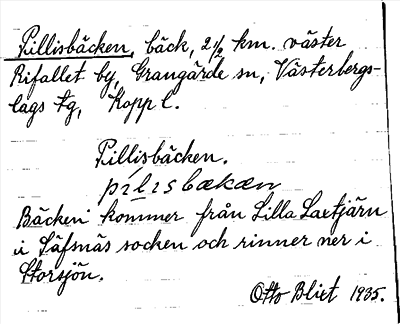 Pillisbäcken, bäck, 2 1/2 km. väster
Rifallet by, Grangärde sn, Västerbergs-
lags tg, Kopp l.
Pillisbäcken.
pílisbækæn
Bäcken kommer från Lilla Laxtjärn
i Säfsnäs socken och rinner ner i
Storsjön.
Otto Blixt 1935.